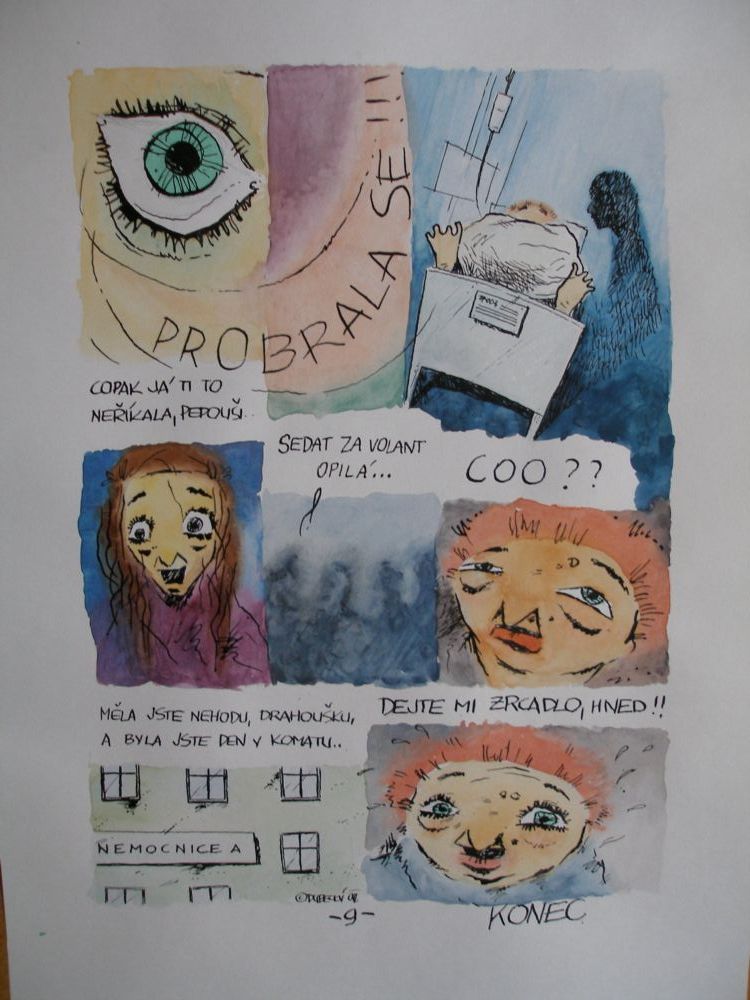 PROBRALA SE !!!
COPAK JÁ TI TO
NEŘÍKALA, PEPOUŠI..
SEDAT ZA VOLANT
OPILÁ...
COO ??
MĚLA JSTE NEHODU, DRAHOUŠKU,
A BYLA JSTE DEN V KOMATU..
DEJTE MI ZRCADLO, HNED !!
NEMOCNICE A
-9-
KONEC